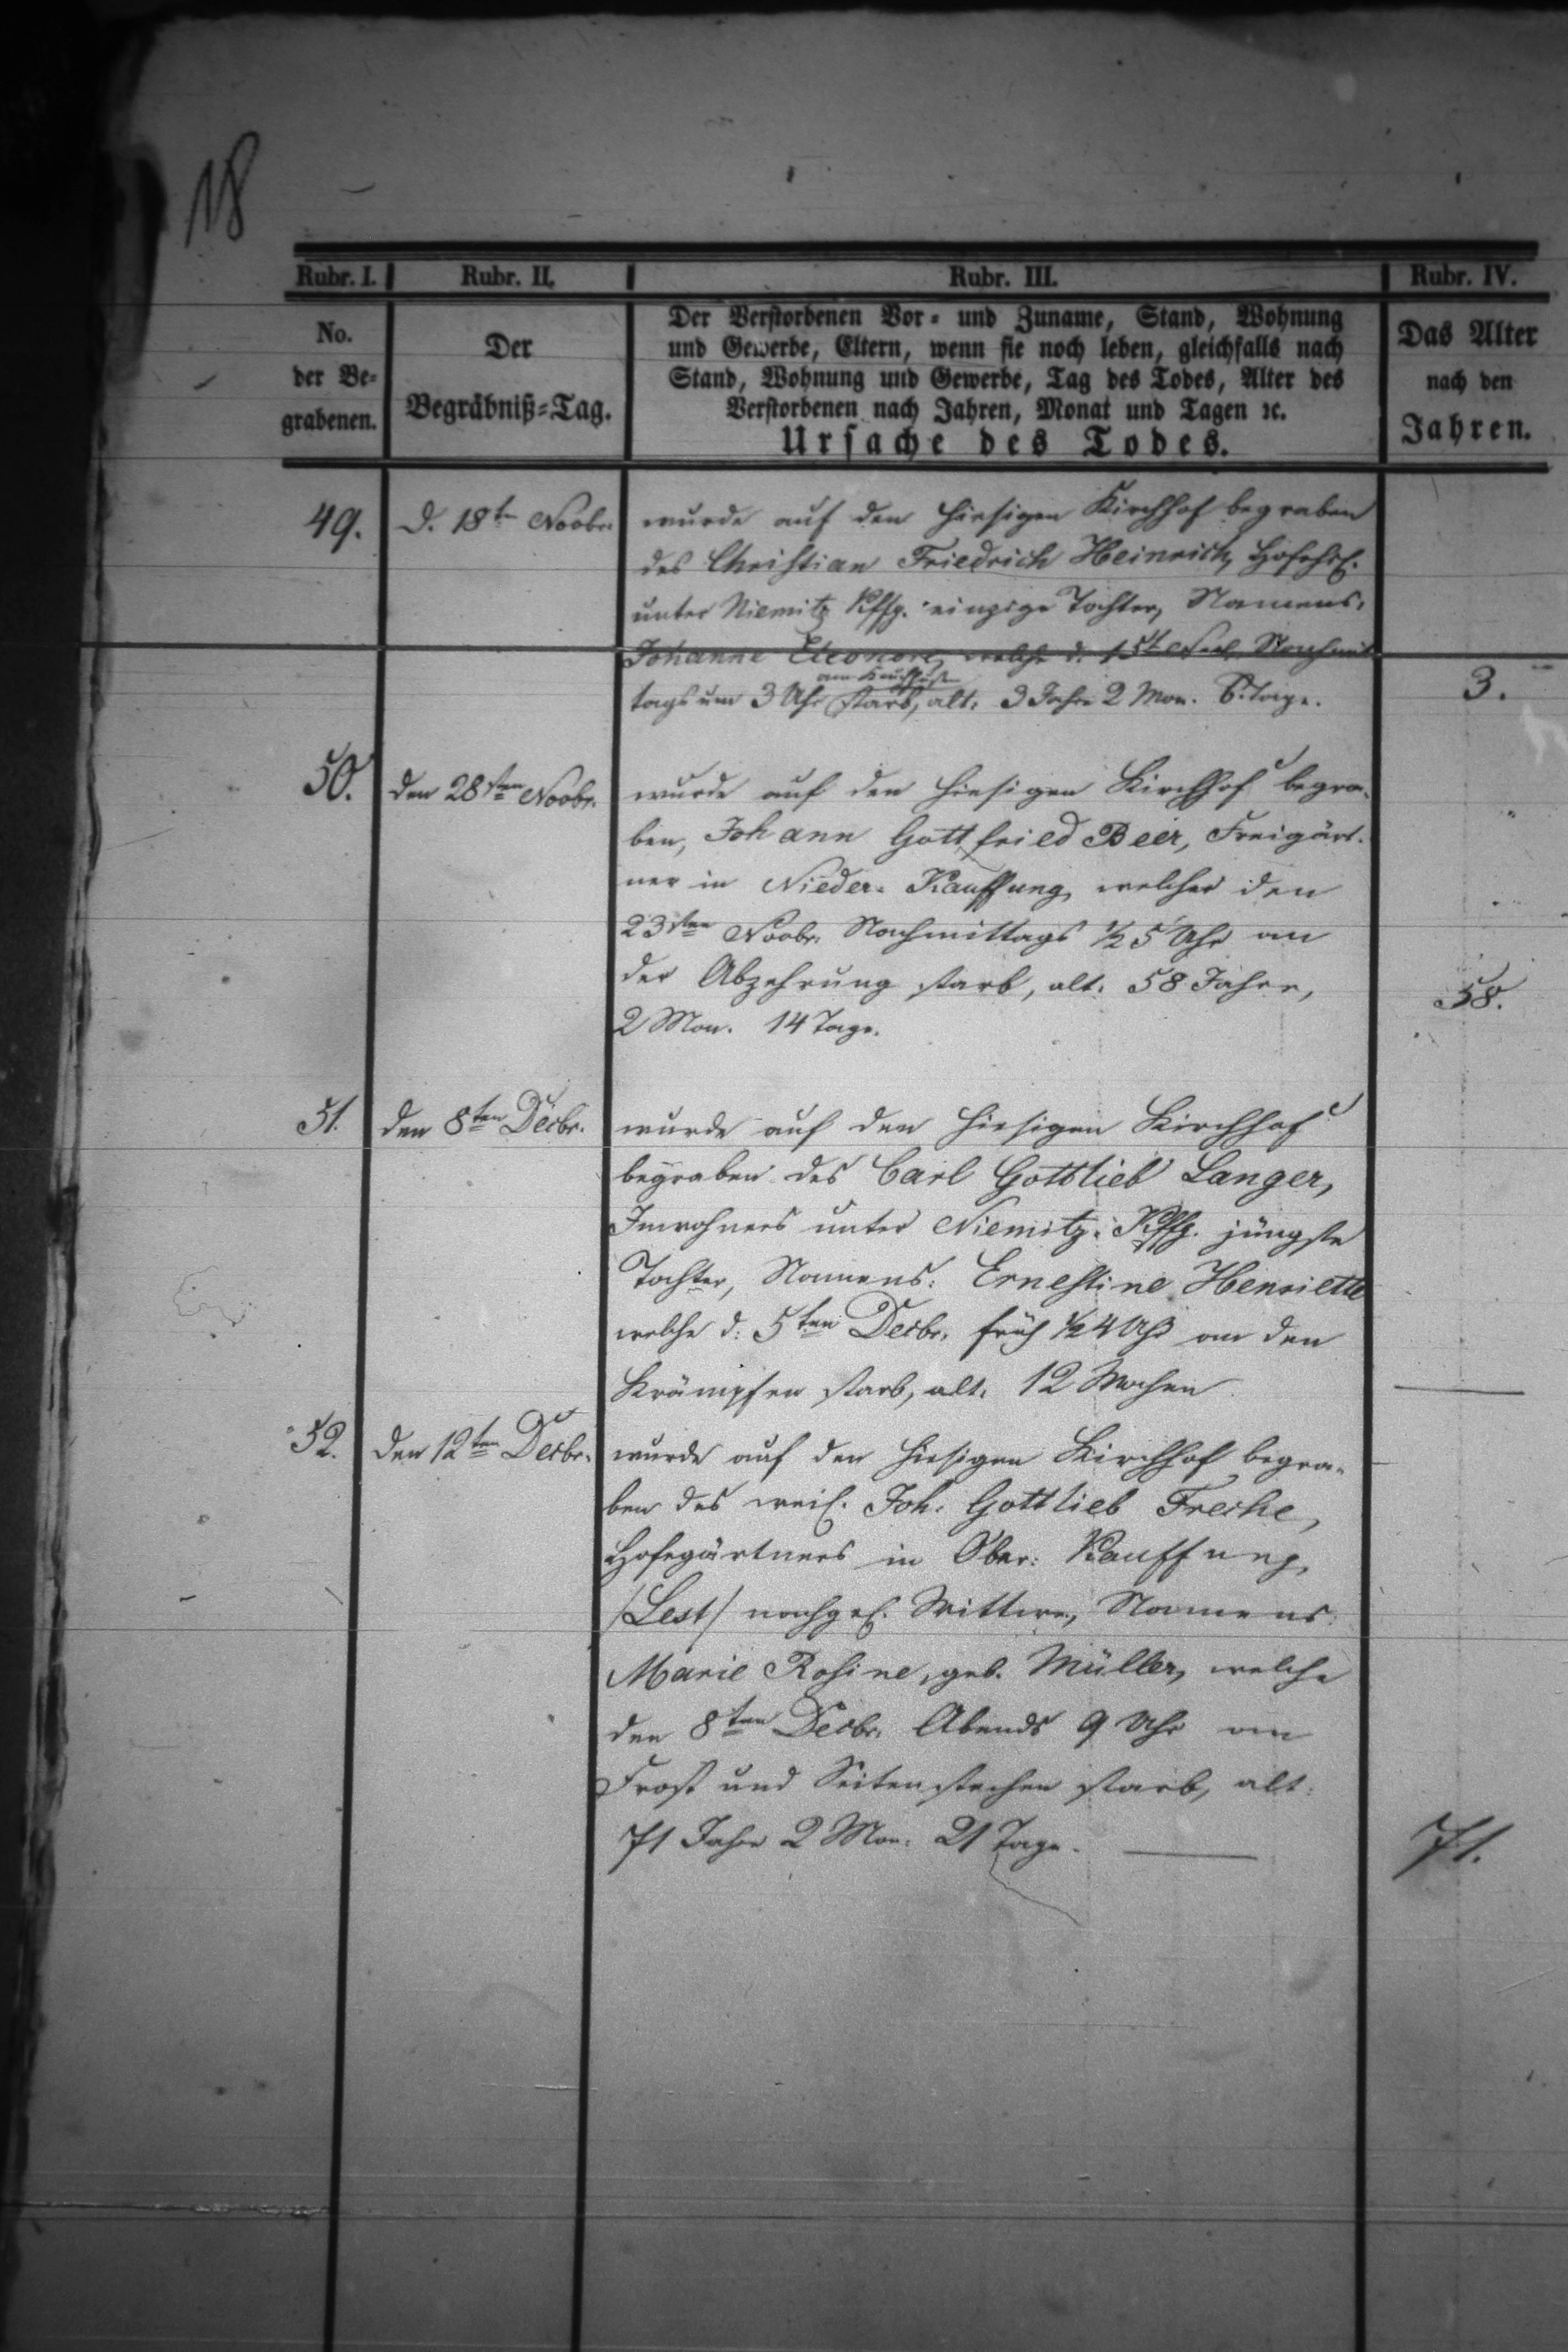 18
Rubr. I. Rubr. II. Rubr. III. Rubr. IV.
No. der Be-grabenen.
Der Begräbniß-Tag.
Der Verstorbenen Vor- und Zuname, Stand, Wohnung
und Gewerbe, Eltern, wenn sie noch leben, gleichfalls nach
Stand, Wohnung und Gewerbe, Tag des Todes, Alter des
Verstorbenen nach Jahren, Monat und Tagen ꝛc.
Ursache des Todes.
Das Alter
nach den
Jahren.
49. d. 18t Novbr. wurde auf den hiesigen Kirchhof begraben
des Christian Friedrich Heinrich,
unter Niemitz Kffg. einzige Tochter, Namens,
Johanne Eleonore, welche d. 15t Nachmit
am
tags um 3 Uhr starb, alt. 3 Jahr 2 Mon. 6. Tage. 3.
50. den 28sten Novbr. wurde auf den hiesigen Kirchhof begra-
ben, Johann Gottfried Beer, Freigärt-
ner in Nieder-Kauffung, welcher den
23sten Novbr. Nachmittags ½ 5 Uhr an
der Abzehrung starb, alt. 58 Jahre, 58.
2 Mon. 14 Tage.
51. den 8ten Decbr. wurde auf den hiesigen Kirchhof
begraben des Carl Gottlieb Langer,
Inwohners unter Niemitz-Kffg. jüngste
Tochter, Namens: Ernestine Henriette
welche d: 5ten Decbr. früh ½ 4 Uhr an den
Krämpfen starb, alt. 12 Wochen
52. den 12ten Decbr. wurde auf den hiesigen Kirchhof begra-
ben des weil. Joh. Gottlieb Freche,
Hofegärtners in Ober: Kauffung,
/Lest/ nachgel. Wittwe, Namens:
Marie Rosine, geb. Müller, welche
den 8ten Decbr. Abends 9 Uhr am
Frost und Seitenstechen starb, alt:
71 Jahr 2 Mon. 21 Tage. 71.